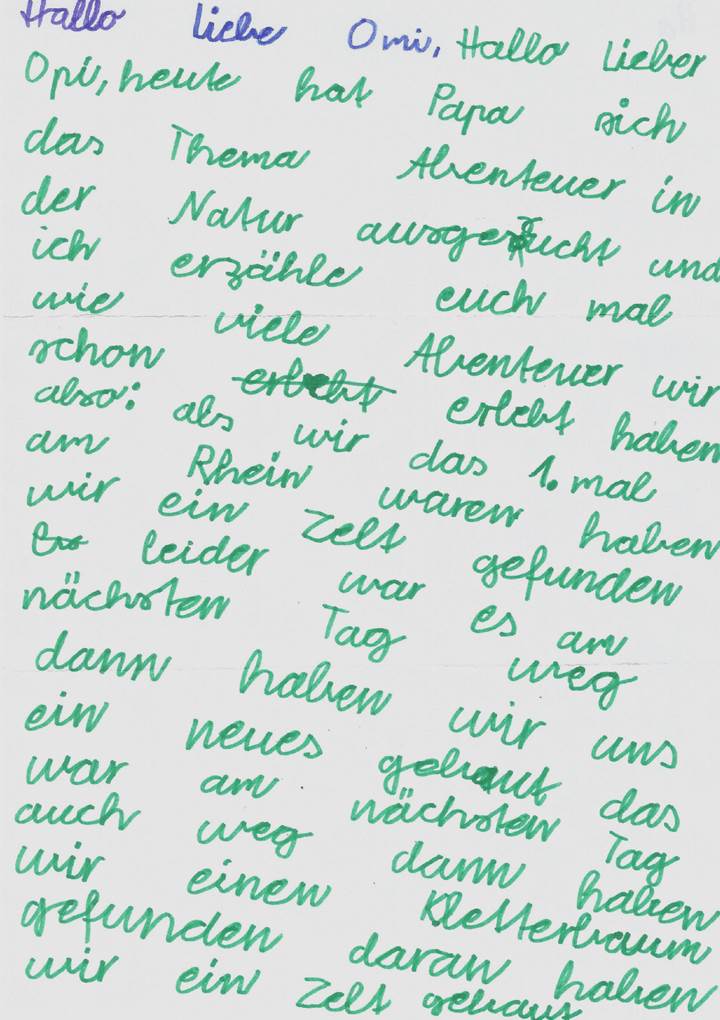 Hallo liebe Omi, Hallo Lieber
Opi, heute hat Papa sich
das Thema Abenteuer in
der Natur ausgesucht und
ich erzähle euch mal
wie viele Abenteuer wir
schon erlebt erlebt haben
also: als wir das 1. mal
am Rhein waren haben
wir ein Zelt gefunden
leider war es am
nächsten Tag weg
dann haben wir uns
ein neues gebaut das
war am nächsten Tag
auch weg dann haben
wir einen Kletterbaum
gefunden daran haben
wir ein Zelt gebaut